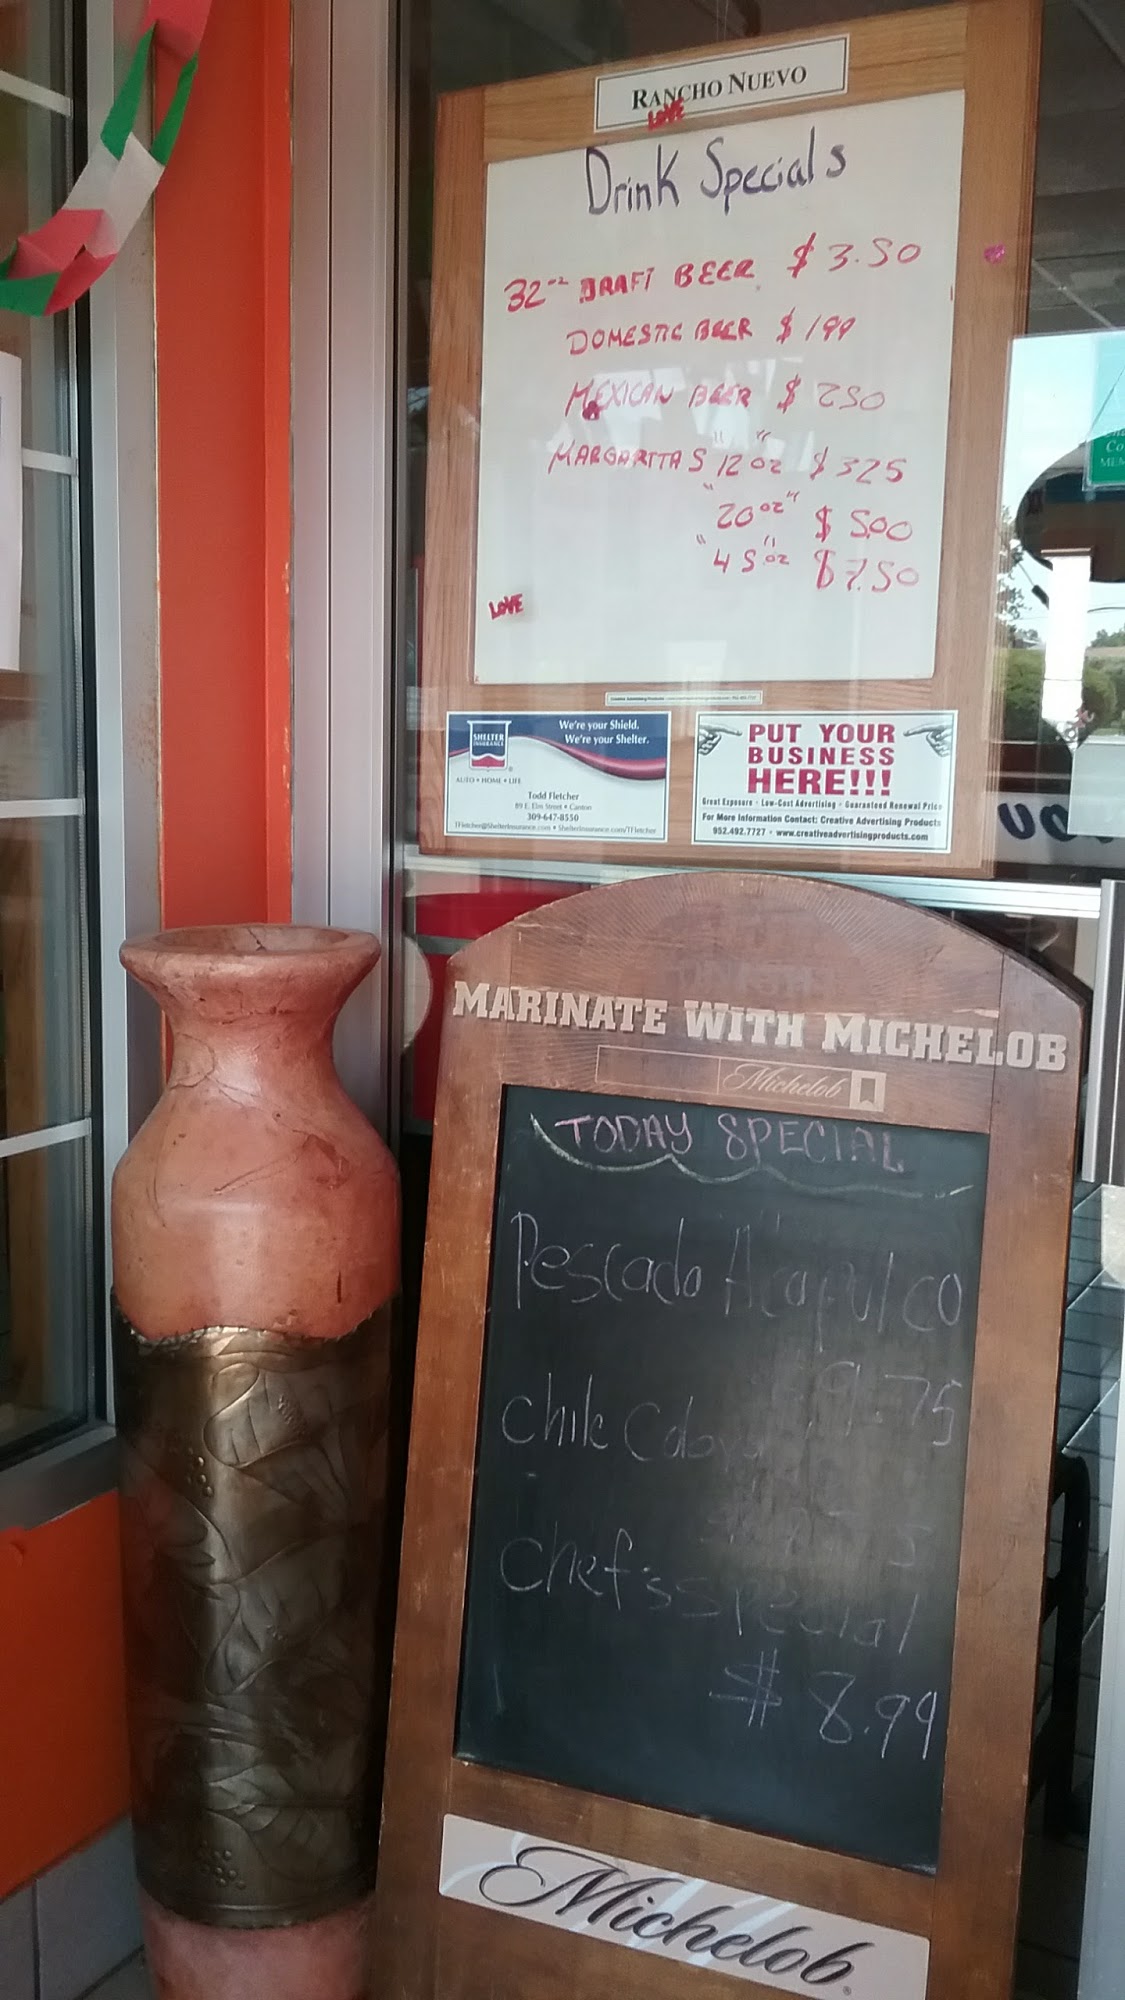 RANCHO NUEVO
LOVE
Drink Specials
32oz DRAFT BEER $3.50
DOMESTIC BEER $199
MEXICAN BEER $250
MARGARITAS "12oz" $325
"20oz" $500
"45oz" $7.50
LOVE
SHELTER INSURANCE
We're your Shield.
We're your Shelter.
AUTO • HOME • LIFE
Todd Fletcher
89 E. Elm Street • Canton
309-647-8550
TFletcher@ShelterInsurance.com • ShelterInsurance.com/TFletcher
PUT YOUR
BUSINESS
HERE!!!
Great Exposure • Low-Cost Advertising • Guaranteed Renewal Price
For More Information Contact: Creative Advertising Products
952.492.7727 • www.creativeadvertisingproducts.com
MARINATE WITH MICHELOB
Michelob
TODAY SPECIAL
Pescado Acapulco
9.75
Chile
Chef's special
$8.99
Michelob